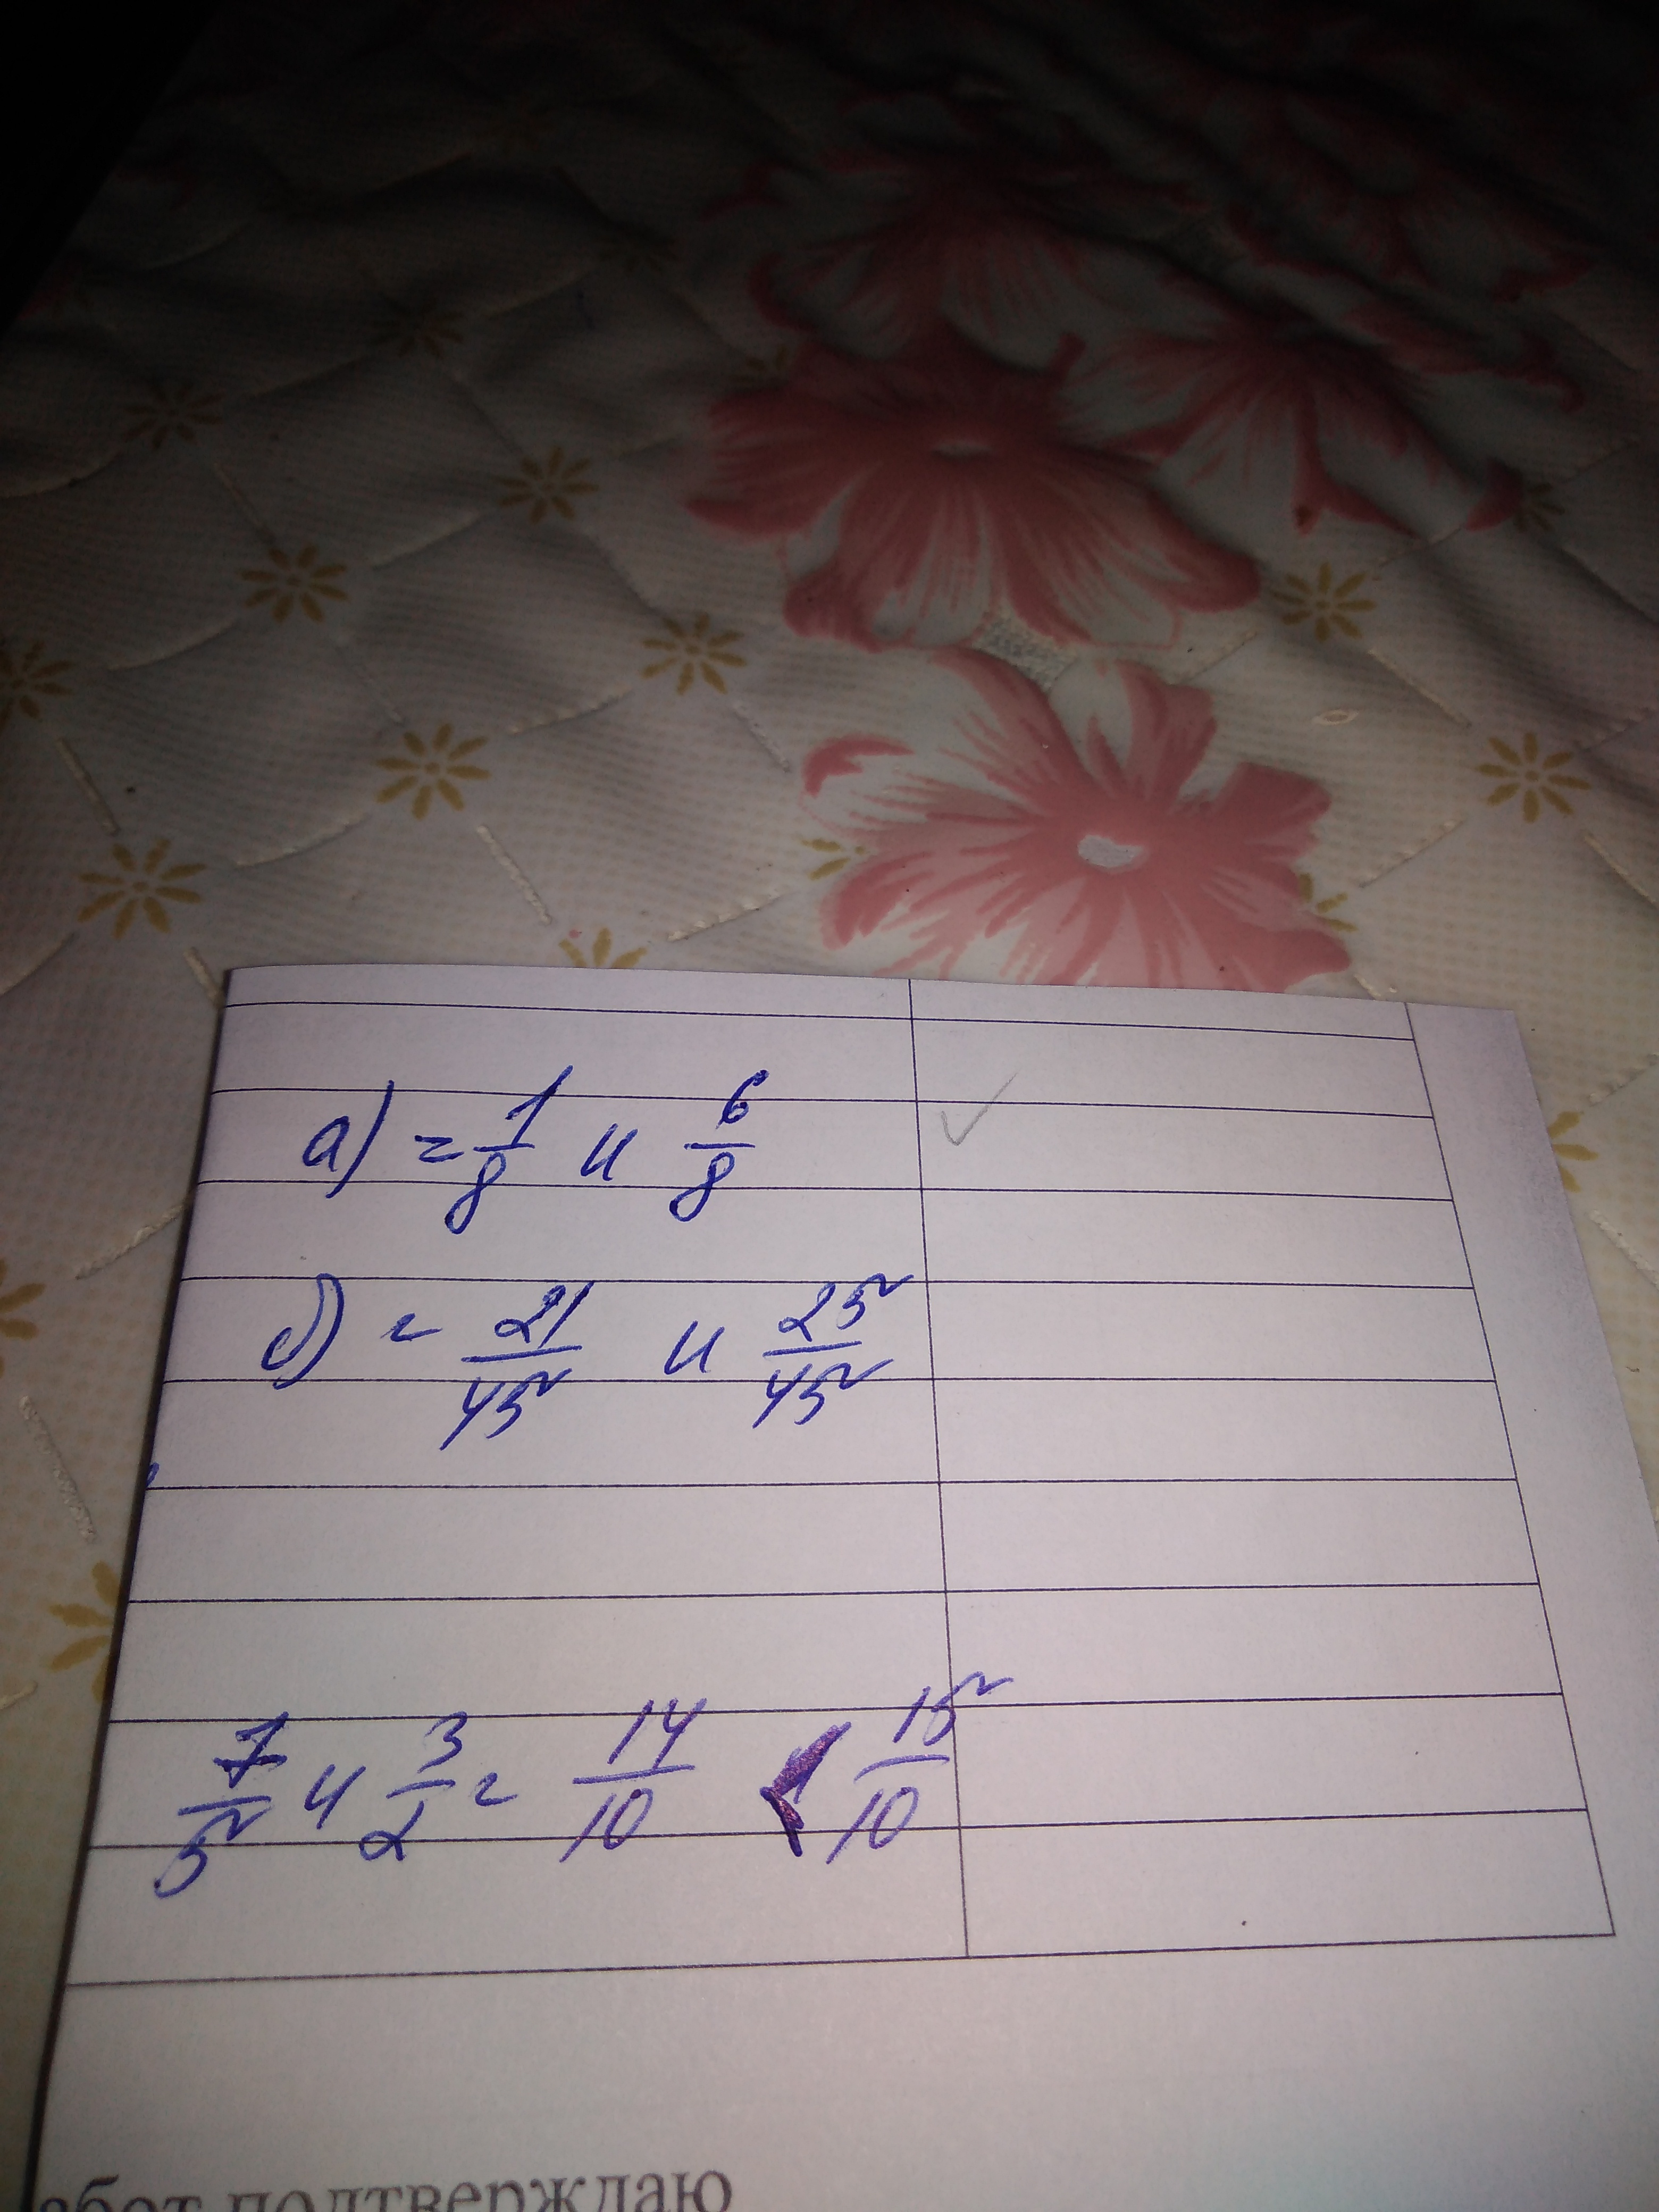 а) = 1/8 и 6/8
б) = 21/45 и 25/45
7/5 и 3/2 = 14/10 < 15/10
абот подтверждаю